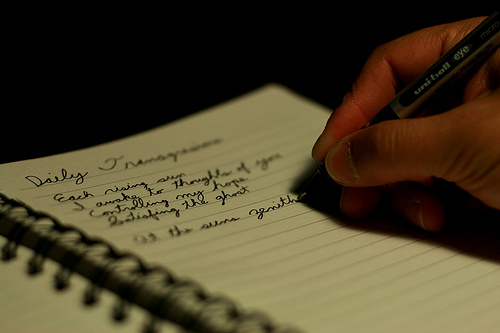 uni-ball eye micro
Daily Transgressions
Each rising sun
I awake to thoughts of you
Controlling my hope
Satisfying the ghost
At the suns zenith